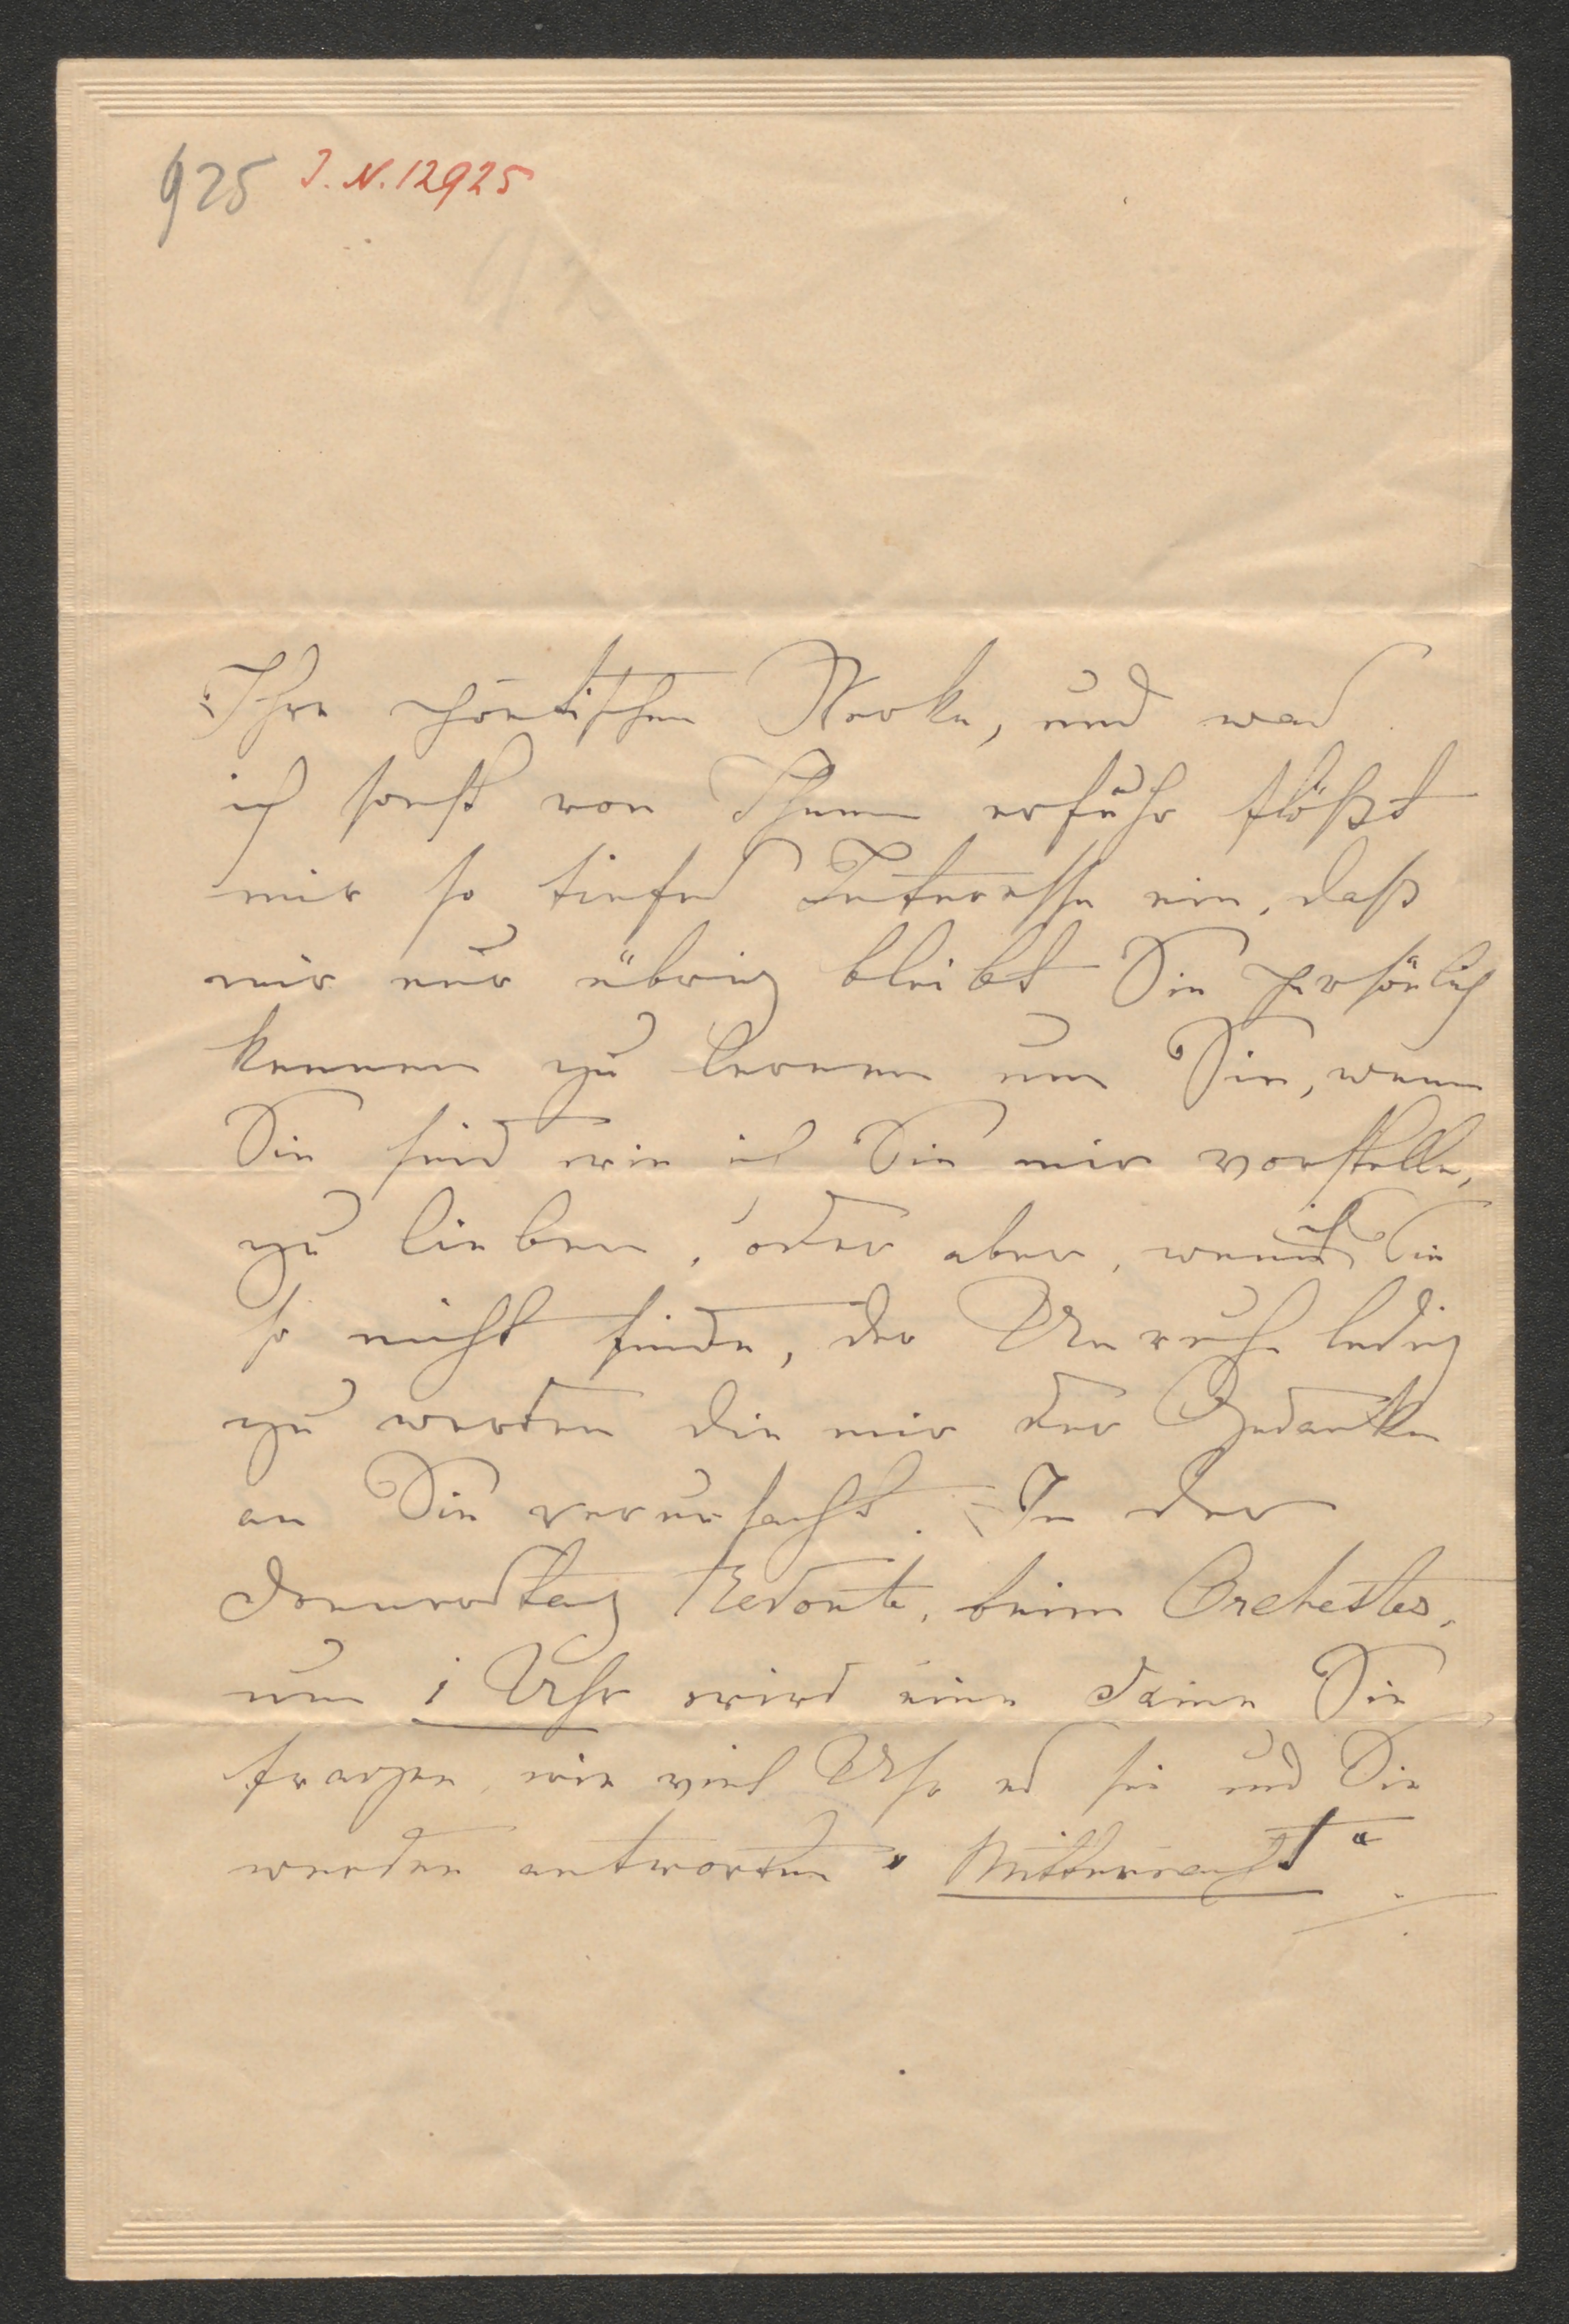 925 I.N.12925
Ihre poëtischen Werke, und was
ich sonst von Ihnen erfuhr flößt
mir so tiefes Interesse ein, daß
mir nur übrig bleibt Sie persönlich
kennen zu lernen um Sie, wenn
Sie sind wie ich Sie mir vorstelle,
zu lieben, oder aber, wenn ich Sie
so nicht finde, der Unruhe ledig
zu werden die mir der Gedanke
an Sie verursacht. In der
Donnerstag Redoute, beim Orchester,
um 1 Uhr wird eine Dame Sie
fragen, wie viel Uhr es sei und Sie
werden antworten "Mitternacht"